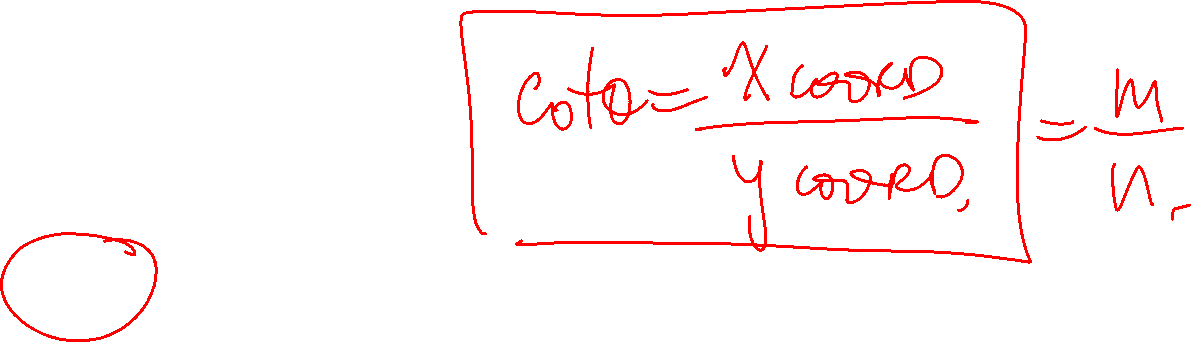 cotθ = x coord / y coord. = m / n.